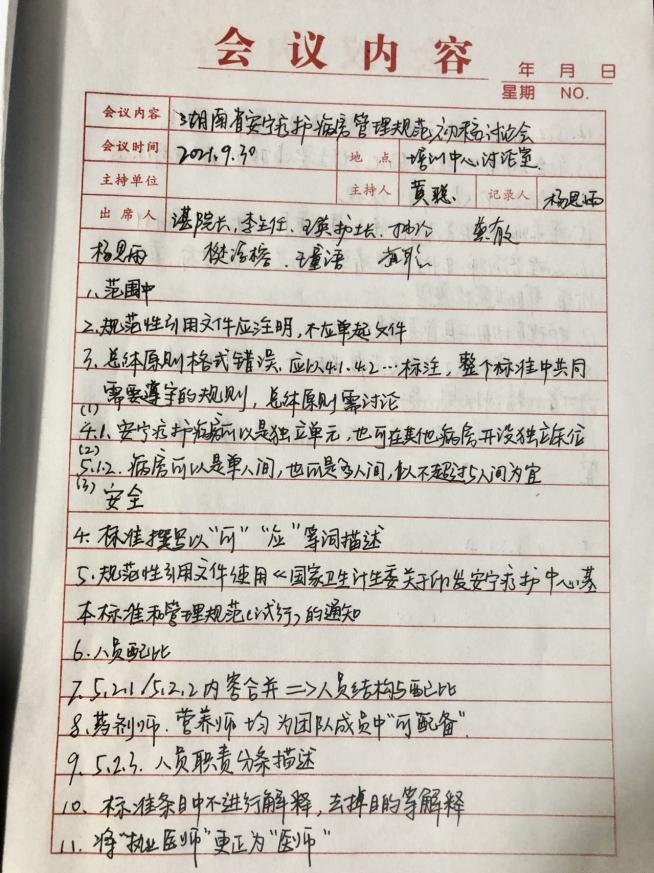 会议内容
年 月 日
星期 NO.
会议内容 湖南省安宁疗护病房管理规范初稿讨论会
会议时间 2021.9.30 地点 培训中心讨论室.
主持单位 主持人 黄聪 记录人 杨思雨
出席人 谌院长, 李主任, 王英护士长,
杨思雨 王童语
1、范围中
2.规范性引用文件应注明,不应单起文件
3、总体原则格式错误、应以4.1、4.2…标注,整个标准中共同
需要遵守的规则,总体原则需讨论
(1)
4.1、安宁疗护病房可以是独立单元,也可在其他病房开设独立床位
(2)
5.1.2、病房可以是单人间,也可是多人间,但不超过5人间为宜
(3) 安全
4. 标准撰写以“可”“应”等词描述
5、规范性引用文件使用《国家卫生计生委关于印发安宁疗护中心基
本标准和管理规范(试行)的通知
6、人员配比
7、5.2.1/5.2.2内容合并=>人员结构与配比
8、药剂师、营养师均为团队成员中“可配备”.
9、5.2.3、人员职责分条描述
10、标准条目中不进行解释,去掉目的等解释
11、将“执业医师”更正为“医师”